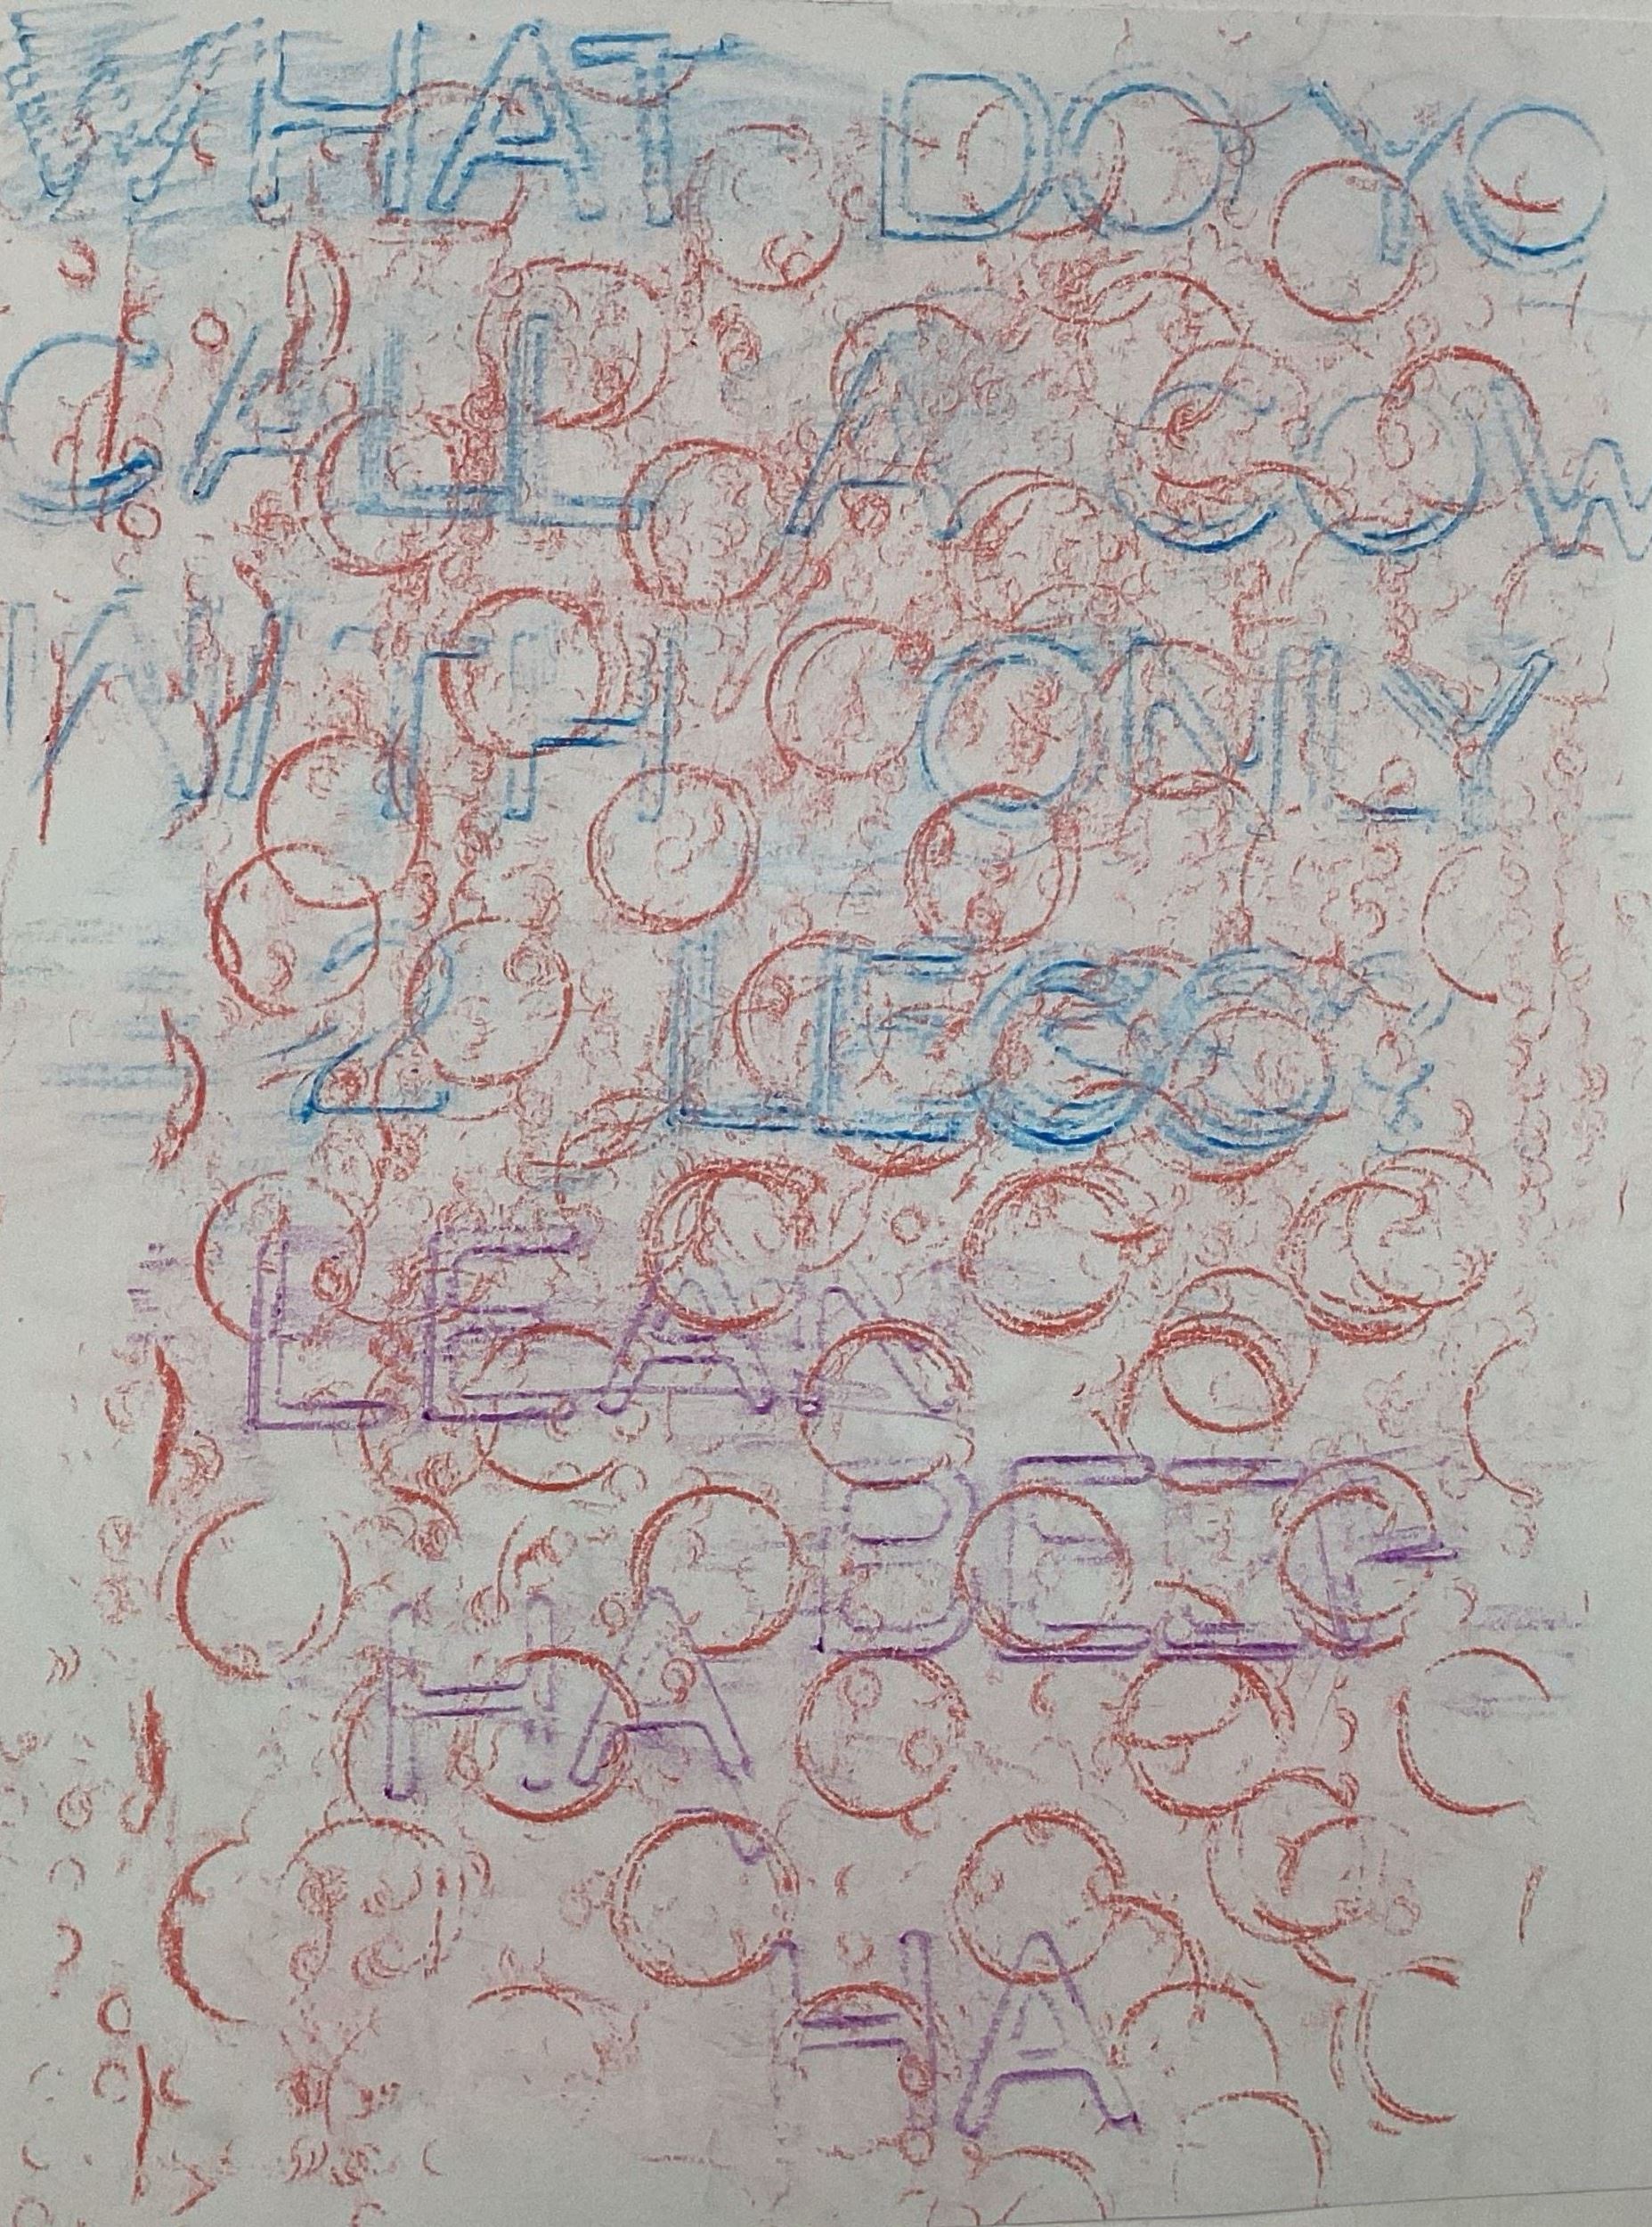 WHAT DO YO
CALL A COW
WITH ONLY
2 LEGS?
LEAN
BEEF
HA
HA